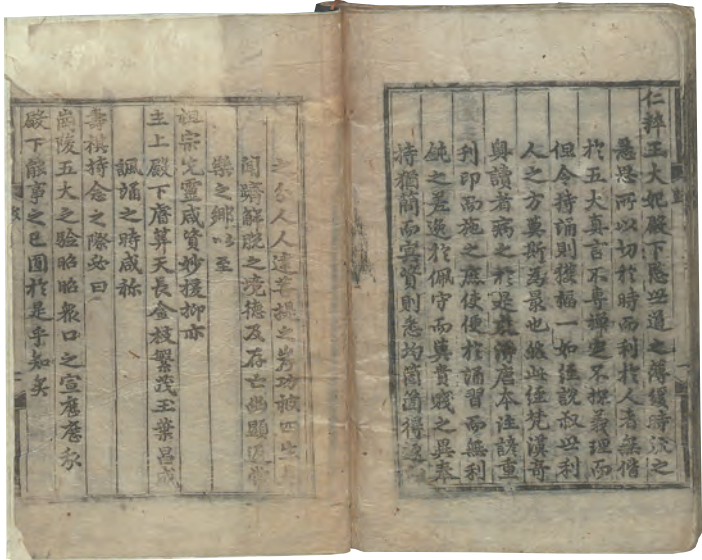 仁粹王大妃殿下愍世道之薄緩時流之
急思所以切於時而利於人者無偕
於五大真言不專禪定不探義理而
但令持誦則獲福一如經說叔世利
人之方莫斯為最也然此經梵漢奇
奧讀者病之於是求得唐本注諺重
刊印而施之庶使便於誦習而無利
鈍之差逸於佩守而莫貴賤之異奉
持猶簡而冥資則悉均箇箇得
之分人人達菩提之岸功被四生
聞躋解脫之境德及存亡幽顯返常
樂之鄉以至
祖宗先靈咸資妙援抑亦
主上殿下睿算天長金枝繁茂玉葉昌盛
諷誦之時咸称
壽祺持念之際必曰
崗陵五大之驗昭昭衆口之宣應應
殿下能事之已圓於是乎知矣